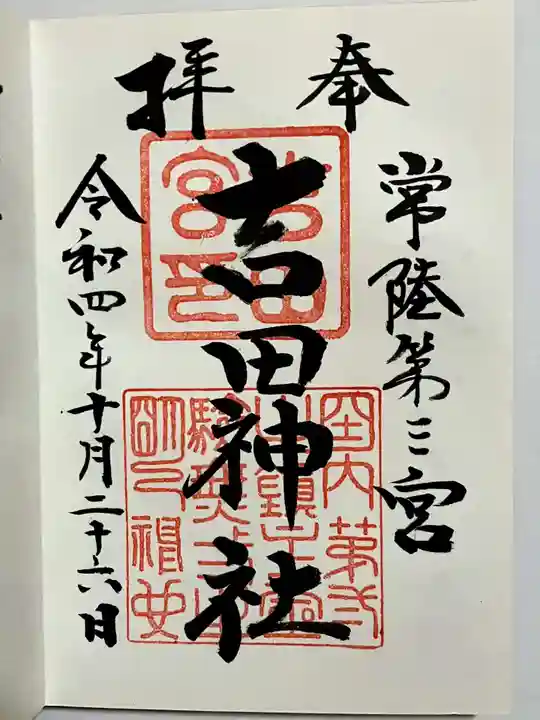 奉拝
常陸第三宮
吉田神社
令和四年十月二十六日
吉田宮印